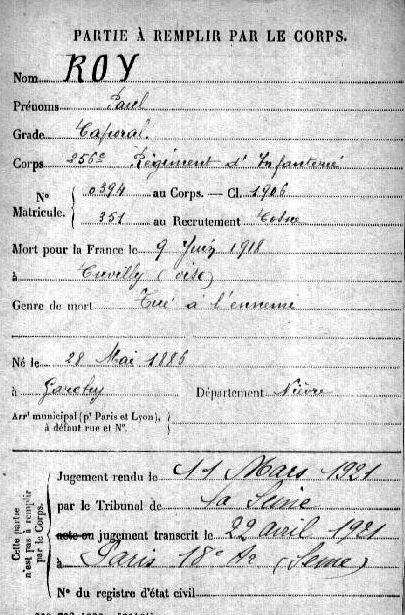 PARTIE À REMPLIR PAR LE CORPS.
Nom ROY
Prénoms Paul
Grade Caporal.
Corps 256e Régiment d'Infanterie
No Matricule. 0394 au Corps. — Cl. 1906
351 au Recrutement Cosne
Mort pour la France le 9 Juin 1918
à Cuvilly (Oise)
Genre de mort Tué à l'ennemi
Né le 28 Mai 1886
à Garchy Département Nièvre
Arrt municipal (pr Paris et Lyon),
à défaut rue et No.
Cette partie n'est pas à remplir par le Corps.
Jugement rendu le 11 Mars 1921
par le Tribunal de la Seine
acte ou jugement transcrit le 22 avril 1921
à Paris 18e Ar (Seine)
No du registre d'état civil